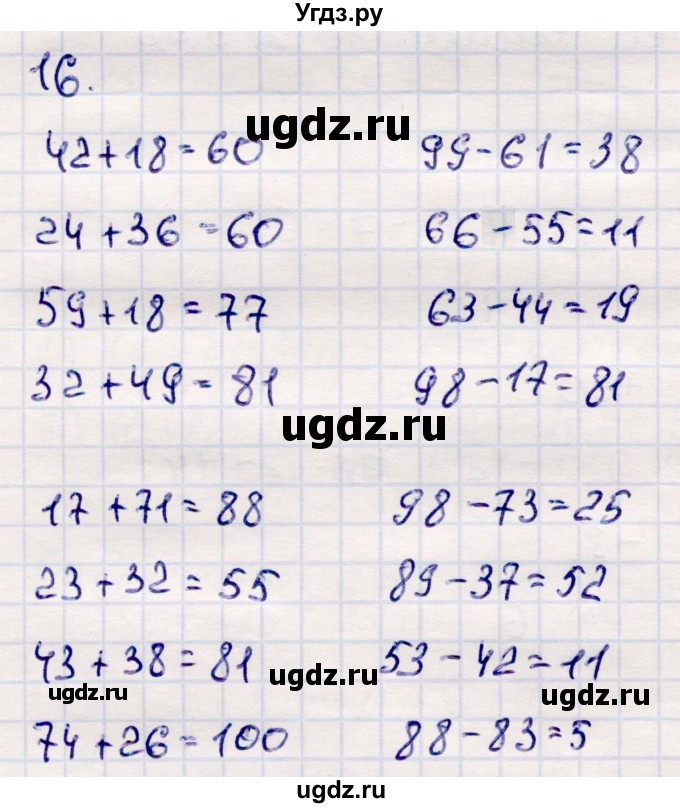 Угдз.ру
16.
ugdz.ru
42+18=60 99-61=38
24+36=60 66-55=11
59+18=77 63-44=19
32+49=81 98-17=81
ugdz.ru
17+71=88 98-73=25
23+32=55 89-37=52
43+38=81 53-42=11
ugdz.ru ugdz.ru ugdz.ru
74+26=100 88-83=5
ugdz.ru